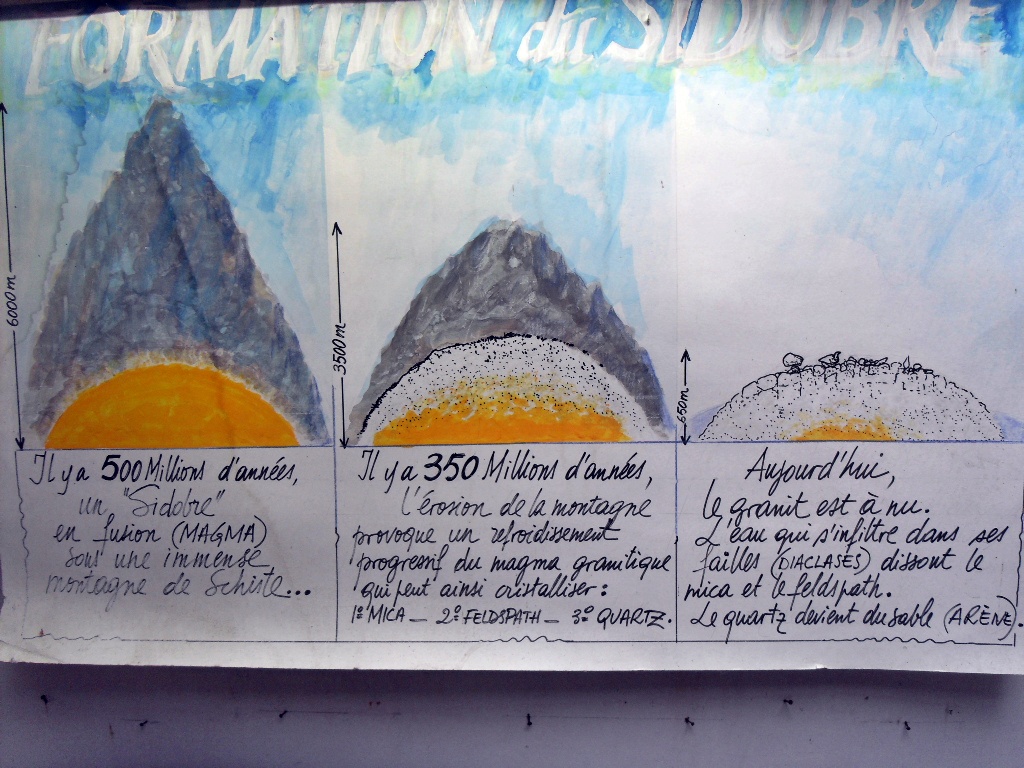 FORMATION du SIDOBRE
6000m
3500m
650m
Il y a 500 Millions d'années,
un "Sidobre"
en fusion (MAGMA)
sous une immense
montagne de Schiste...
Il y a 350 Millions d'années,
l'érosion de la montagne
provoque un refroidissement
progressif du magma granitique
qui peut ainsi cristalliser:
1º MICA - 2º FELDSPATH - 3º QUARTZ.
Aujourd'hui,
le granit est à nu.
L'eau qui s'infiltre dans ses
failles (DIACLASES) dissout le
mica et le feldspath.
Le quartz devient du sable (ARÈNE).